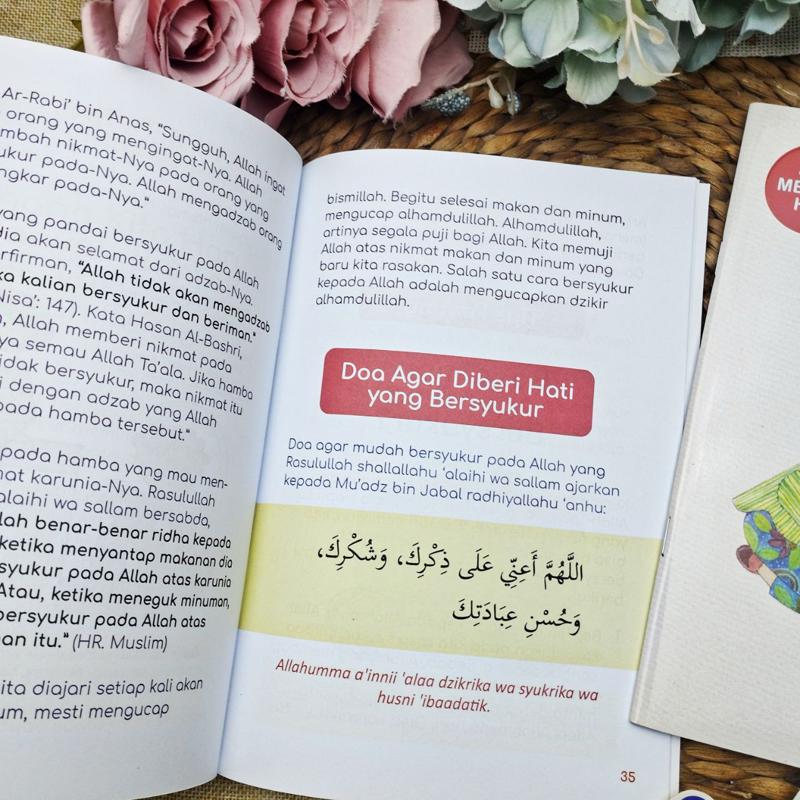 Ar-Rabi' bin Anas, "Sungguh, Allah ingat
orang yang mengingat-Nya. Allah
mbah nikmat-Nya pada orang yang
ukur pada-Nya. Allah mengadzab orang
ngkar pada-Nya."
yang pandai bersyukur pada Allah
dia akan selamat dari adzab-Nya.
erfirman, "Allah tidak akan mengadzab
ka kalian bersyukur dan beriman."
Nisa': 147). Kata Hasan Al-Bashri,
, Allah memberi nikmat pada
ya semau Allah Ta'ala. Jika hamba
idak bersyukur, maka nikmat itu
i dengan adzab yang Allah
pada hamba tersebut."
pada hamba yang mau men-
mat karunia-Nya. Rasulullah
alaihi wa sallam bersabda,
llah benar-benar ridha kepada
ketika menyantap makanan dia
syukur pada Allah atas karunia
Atau, ketika meneguk minuman,
bersyukur pada Allah atas
an itu." (HR. Muslim)
ita diajari setiap kali akan
um, mesti mengucap
bismillah. Begitu selesai makan dan minum,
mengucap alhamdulillah. Alhamdulillah,
artinya segala puji bagi Allah. Kita memuji
Allah atas nikmat makan dan minum yang
baru kita rasakan. Salah satu cara bersyukur
kepada Allah adalah mengucapkan dzikir
alhamdulillah.
Doa Agar Diberi Hati
yang Bersyukur
Doa agar mudah bersyukur pada Allah yang
Rasulullah shallallahu 'alaihi wa sallam ajarkan
kepada Mu'adz bin Jabal radhiyallahu 'anhu:
اللَّهُمَّ أَعِنِّي عَلَى ذِكْرِكَ، وَشُكْرِكَ،
وَحُسْنِ عِبَادَتِكَ
Allahumma a'innii 'alaa dzikrika wa syukrika wa
husni 'ibaadatik.
35
ME
H